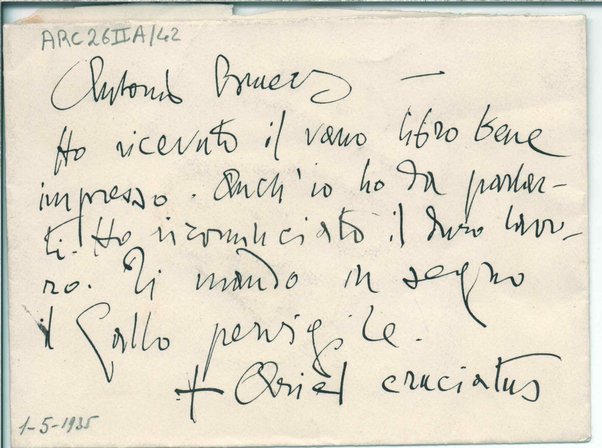 ARC26IIA/42
Antonio Bruers —
Ho ricevuto il vano libro bene
impresso. Anch'io ho da parlar-
ti. Ho ricominciato il duro lavo-
ro. Ti mando in segno
il Gallo pervigile.
+ Ariel cruciatus
1-5-1935